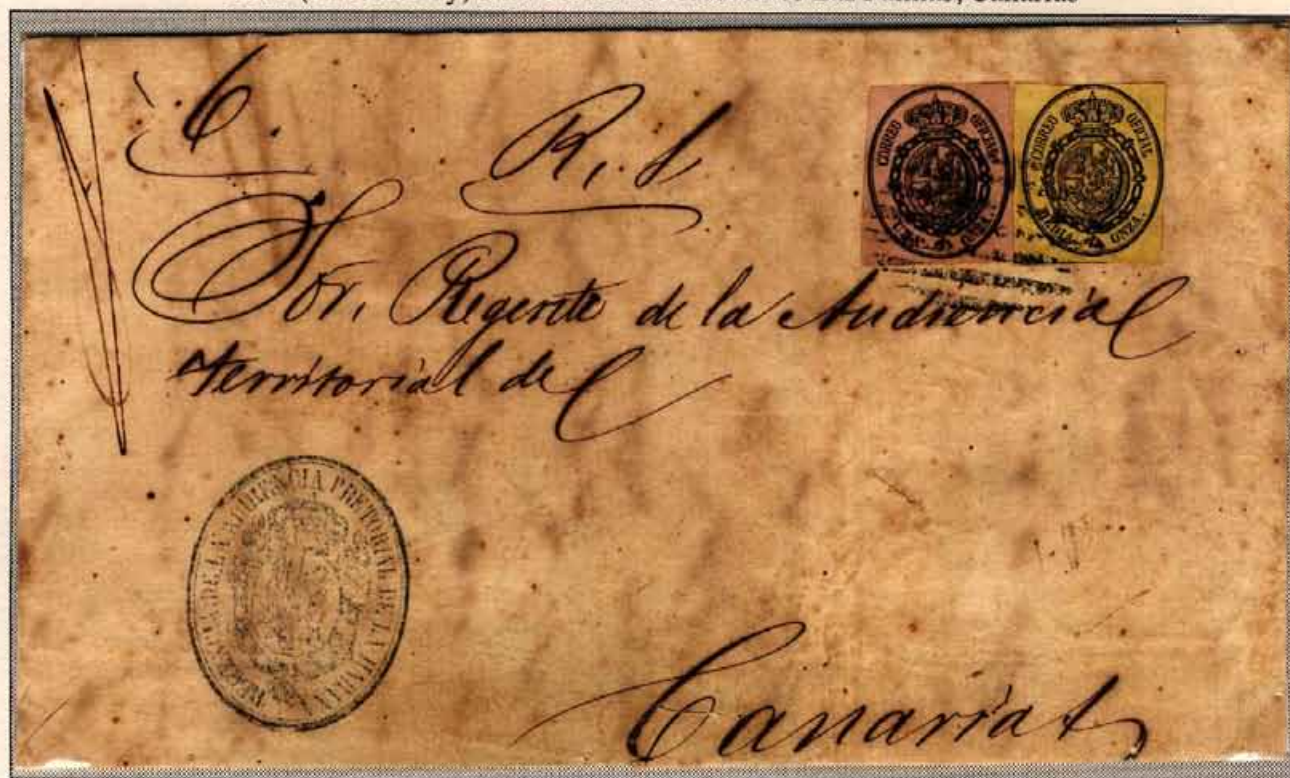 Canarias
C.
R. S.
CORREO OFICIAL
UNA ONZA.
CORREO OFICIAL
MEDIA ONZA
Sor. Regente de la Audiencia
territorial de
REGENCIA DE LA AUDIENCIA PRETORIAL DE LA HABANA
Canarias